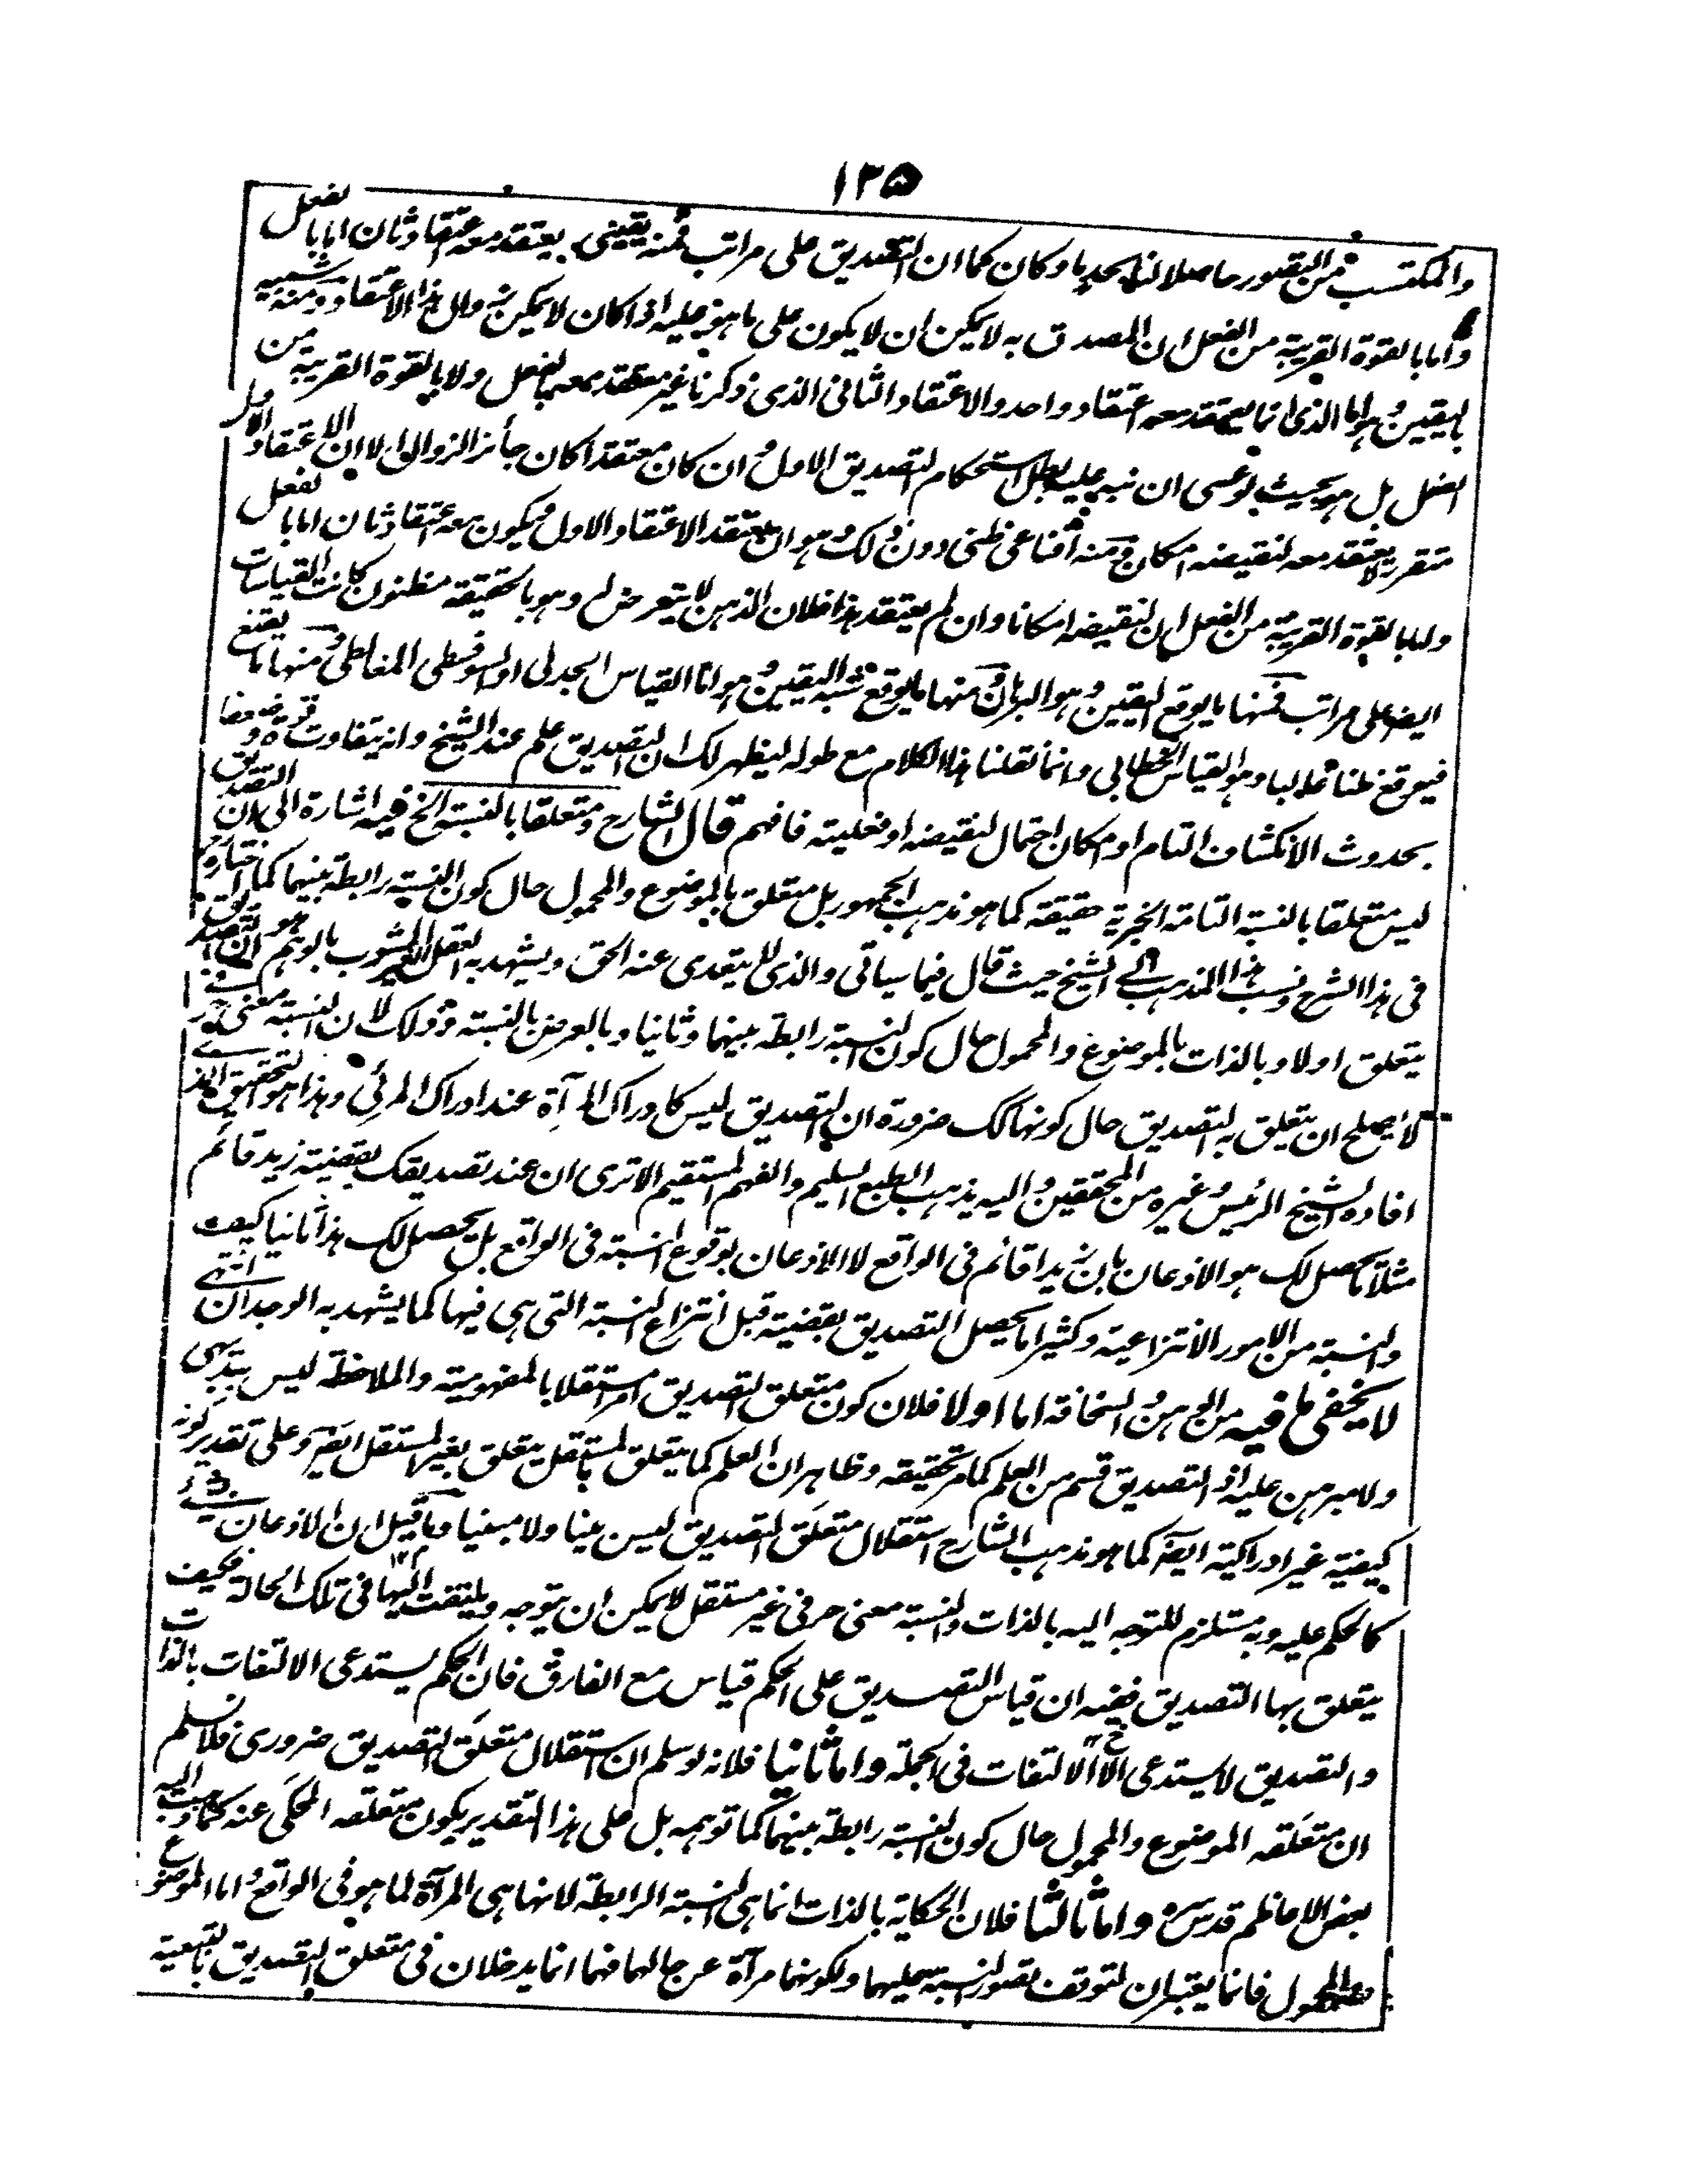 ١٢٥
والمكتسب من التصور حاصلا لنا بحد ما وكان كما ان التصديق على مراتب فمنه يقيني يعتقد معه اعتقاد ثان اما بالفعل
واما بالقوة القريبة من الفعل ان المصدق به لا يمكن ان لا يكون على ما هو عليه اذا كان لا يمكن زوال هذا الاعتقاد ومنه شبيه
باليقين وهو اما الذي انما يعتقد معه اعتقاد واحد والاعتقاد الثاني الذي ذكرنا غير معتقد معه بالفعل ولا بالقوة القريبة من
الفعل بل هو بحيث لو عسى ان نبه عليه بطل استحكام التصديق الاول وان كان معتقدا كان جائز الزوال الا ان الاعتقاد الاول
متقرر لا يعتقد معه لنقيضه امكان ومنه اقناعي ظني دون ذلك وهو ان يعتقد الاعتقاد الاول ويكون معه اعتقاد ثان اما بالفعل
واما بالقوة القريبة من الفعل ان لنقيضه امكانا وان لم يعتقد هذا فلان الذهن لا يتعرض له وهو بالحقيقة مظنون كانت القياسات
ايضا على مراتب فمنها ما يوقع اليقين وهو البرهان ومنها ما يوقع شبه اليقين وهو اما القياس الجدلي او السوفسطي المغالطي ومنها ما يقنع
فيوقع ظنا غالبا وهو القياس الخطابي وانما نقلنا هذا الكلام مع طوله ليظهر لك ان التصديق علم عند الشيخ وانه يتفاوت قوة وضعفا
بحدوث الانكشاف التام او امكان احتمال لنقيضه او فعليته فافهم قال الشارح ومتعلقا بالنسبة الخ فيه اشارة الى ان التصديق
ليس متعلقا بالنسبة التامة الخبرية حقيقة كما هو مذهب الجمهور بل متعلق بالموضوع والمحمول حال كون النسبة رابطة بينهما كما اختاره
في هذا الشرح ونسب هذا المذهب الى الشيخ حيث قال فيما سياتي والذي لا يتعدى عنه الحق ويشهد به العقل الغير المشوب بالوهم هو ان التصديق
يتعلق اولا وبالذات بالموضوع والمحمول حال كون النسبة رابطة بينهما وثانيا وبالعرض بالنسبة وذلك لان النسبة معنى حرفي
لا يصلح ان يتعلق به التصديق حال كونها كك ضرورة ان التصديق ليس كادراك المرآة عند ادراك المرئي وهذا هو التحقيق الذي
افاده الشيخ الرئيس وغيره من المحققين واليه يذهب الطبع السليم والفهم المستقيم الا ترى ان عند تصديقك بقضية زيد قائم
مثلا ما يحصل لك هو الاذعان بان زيدا قائم في الواقع لا الاذعان بوقوع النسبة في الواقع بل يحصل لك هذا ثانيا كيف
والنسبة من الامور الانتزاعية وكثيرا ما يحصل التصديق بقضية قبل انتزاع النسبة التي هي فيها كما يشهد به الوجدان انتهى
لا يخفى ما فيه من الوهن والسخافة اما اولا فلان كون متعلق التصديق امرا مستقلا بالمفهومية والملاحظة ليس ببديهي
ولا مبرهن عليه اذ التصديق قسم من العلم كما مر تحقيقه وظاهر ان العلم كما يتعلق بالمستقل يتعلق بغير المستقل ايضا وعلى تقدير كونه
كيفية غير ادراكية ايضا كما هو مذهب الشارح استقلال متعلق التصديق ليس بينا ولا مبينا وما قيل ان الاذعان بشيء
كالحكم عليه وبه مستلزم للتوجه اليه بالذات والنسبة معنى حرفي غير مستقل لا يمكن ان يتوجه ويلتفت اليها في تلك الحالة فكيف
يتعلق بها التصديق ففيه ان قياس التصديق على الحكم قياس مع الفارق فان الحكم يستدعي الالتفات بالذات
والتصديق لا يستدعي الا الالتفات في الجملة واما ثانيا فلانه لو سلم ان استقلال متعلق التصديق ضروري فلا نسلم
ان متعلقه الموضوع والمحمول حال كون النسبة رابطة بينهما كما توهمه بل على هذا التقدير يكون متعلقه المحكي عنه كما ذهب اليه
بعض الاعاظم قدس سره واما ثالثا فلان الحكاية بالذات انما هي النسبة الرابطة لانها هي المرآة لما هو في الواقع واما الموضوع
والمحمول فانما يعتبران لتوقف تصور النسبة عليهما ولكونها مرآة عن حالهما فهما انما يدخلان في متعلق التصديق بالتبعية